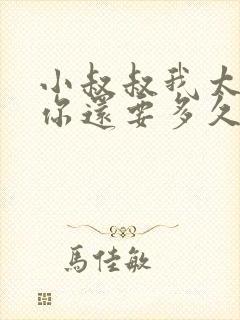 小叔叔我太
你還要多久
馬佳敏